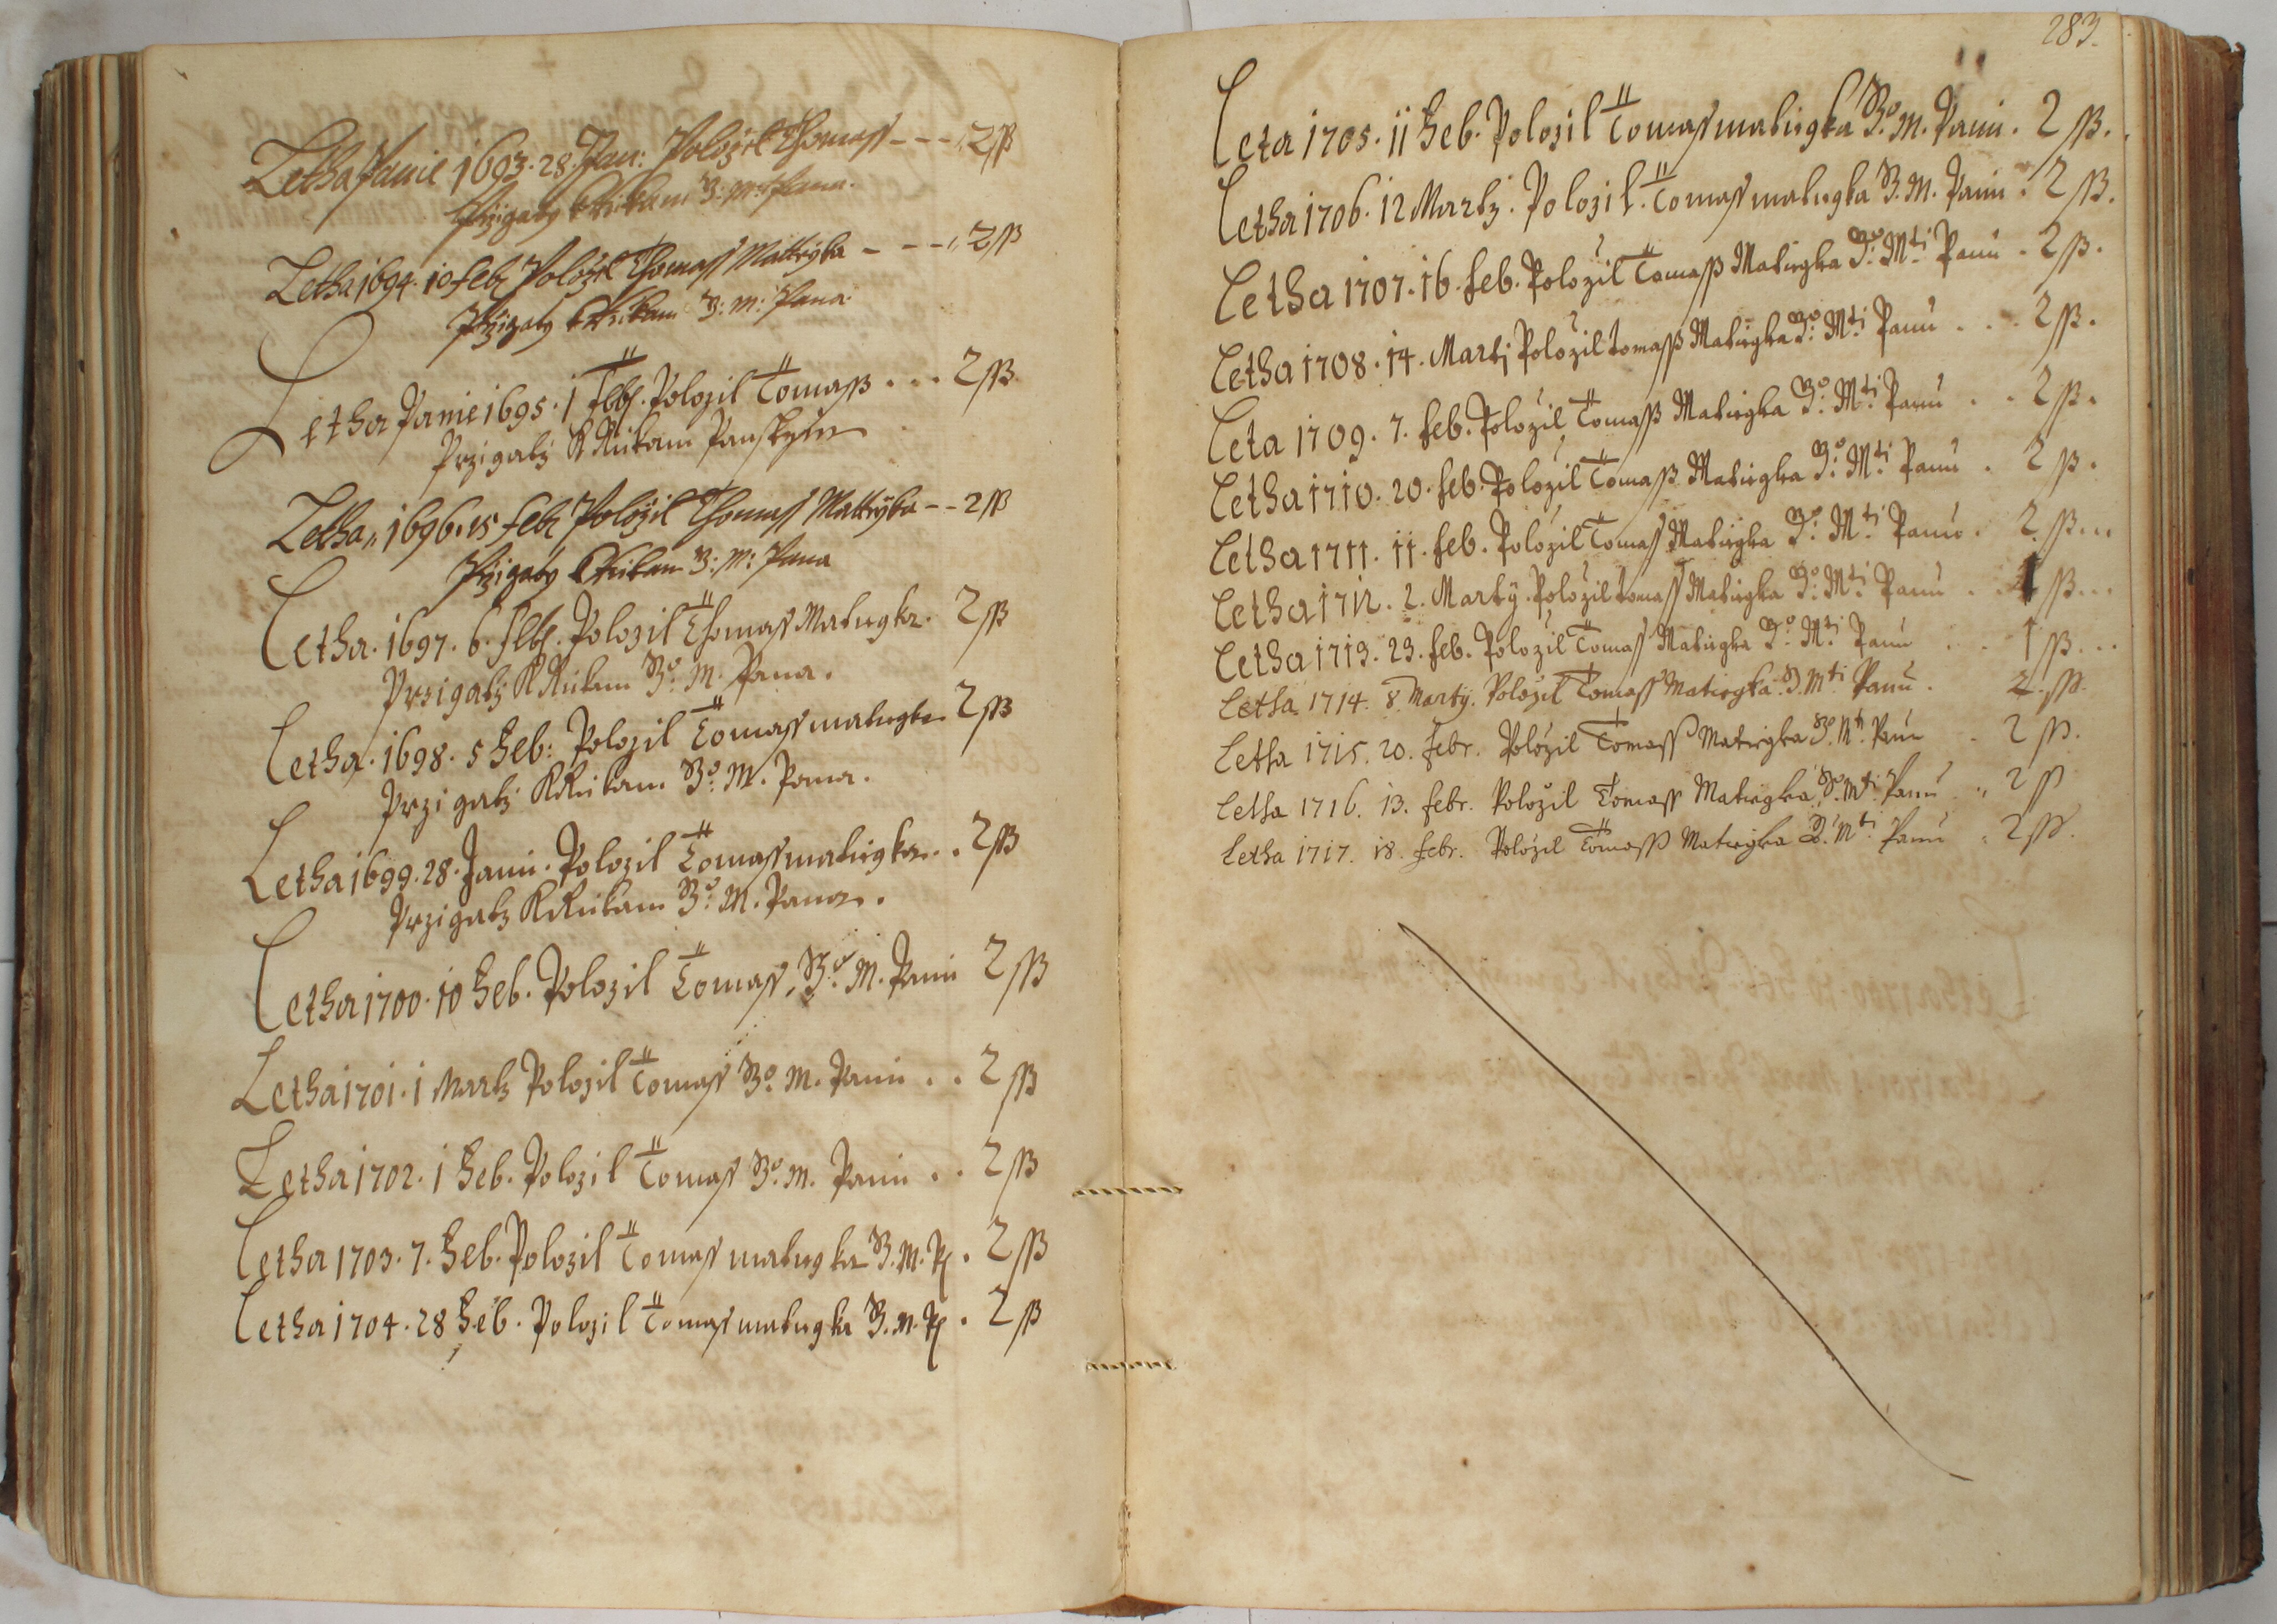 Letha Panie 1693. 28 Jan: Položil Thomass --- 2 ss
Przigaty k Rukam J: M: Pana.
Letha 1694. 10 Febr Položil Thomass Mattigka --- 2 ss
Przigaty k Rukam J: M: Pana.
Letha Panie 1695. 1 Feb. Polozil Tomass . . . 2 ss
Przigatz K Rukam Panskym
Letha 1696. 15 Febr Položil Thomass Mattyka -- 2 ss
Przigaty k Rukam J: M: Pana
Letha. 1697. 6. Feb. Polozil Thomass Matugka. 2 ss
Przigatz K Rukam Jo: M. Pana.
Letha. 1698. 5 Feb: Polozil Tomass matugka 2 ss
Przigatz K Rukam Jo: M. Pana.
Letha 1699. 28. Janu. Polozil Tomass matugka . . 2 ss
Przigatz K Rukam Jo: M. Pana.
Letha 1700. 10 Feb. Polozil Tomass, Jo: M. Panu 2 ss
Letha 1701. 1 Martz Polozil Tomass Jo: M. Panu . . 2 ss
Letha 1702. 1 Feb. Polozil Tomass Jo: M. Panu . . 2 ss
Letha 1703. 7. Feb. Polozil Tomass matugka J. M. P. 2 ss
Letha 1704. 28 Feb. Polozil Tomass matugka J. M. P. 2 ss
283.
Leta 1705. 11 Feb. Polozil Tomass matugka Jo. M. Panu. 2 ss.
Letha 1706. 12 Martz. Polozil. Tomass matugka J. M. Panu. 2 ss.
Letha 1707. 16. Feb. Polozil Tomass Matugka Jo: Mti Panu . 2 ss.
Letha 1708. 14. Martj Polozil Tomass Matugka Jo: Mti Panu . . . 2 ss.
Leta 1709. 7. Feb. Polozil Tomass Matugka Jo: Mti Panu . . 2 ss.
Letha 1710. 20. Feb. Polozil Tomass Matugka Jo: Mti Panu . 2 ss.
Letha 1711. 11. Feb. Polozil Tomass Matugka Jo: Mti Panu . 2 ss...
Letha 1712. 2. Marty. Polozil Tomass Matugka Jo: Mti Panu . . 1 ss...
Letha 1713. 23. Feb. Polozil Tomass Matugka Jo: Mti Panu . . 1 ss...
Letha 1714. 8. Marty. Polozil Tomass Matugka. J. Mti Panu . 2. ss.
Letha 1715. 20. Febr. Polozil Tomass Matugka Jo. Mti Panu . 2 ss.
Letha 1716. 13. Febr. Položil Tomass Matugka Jo. Mti Panu . 2 ss
Letha 1717. 18. Febr. Položil Tomass Matugka J. Mti Panu . 2 ss.